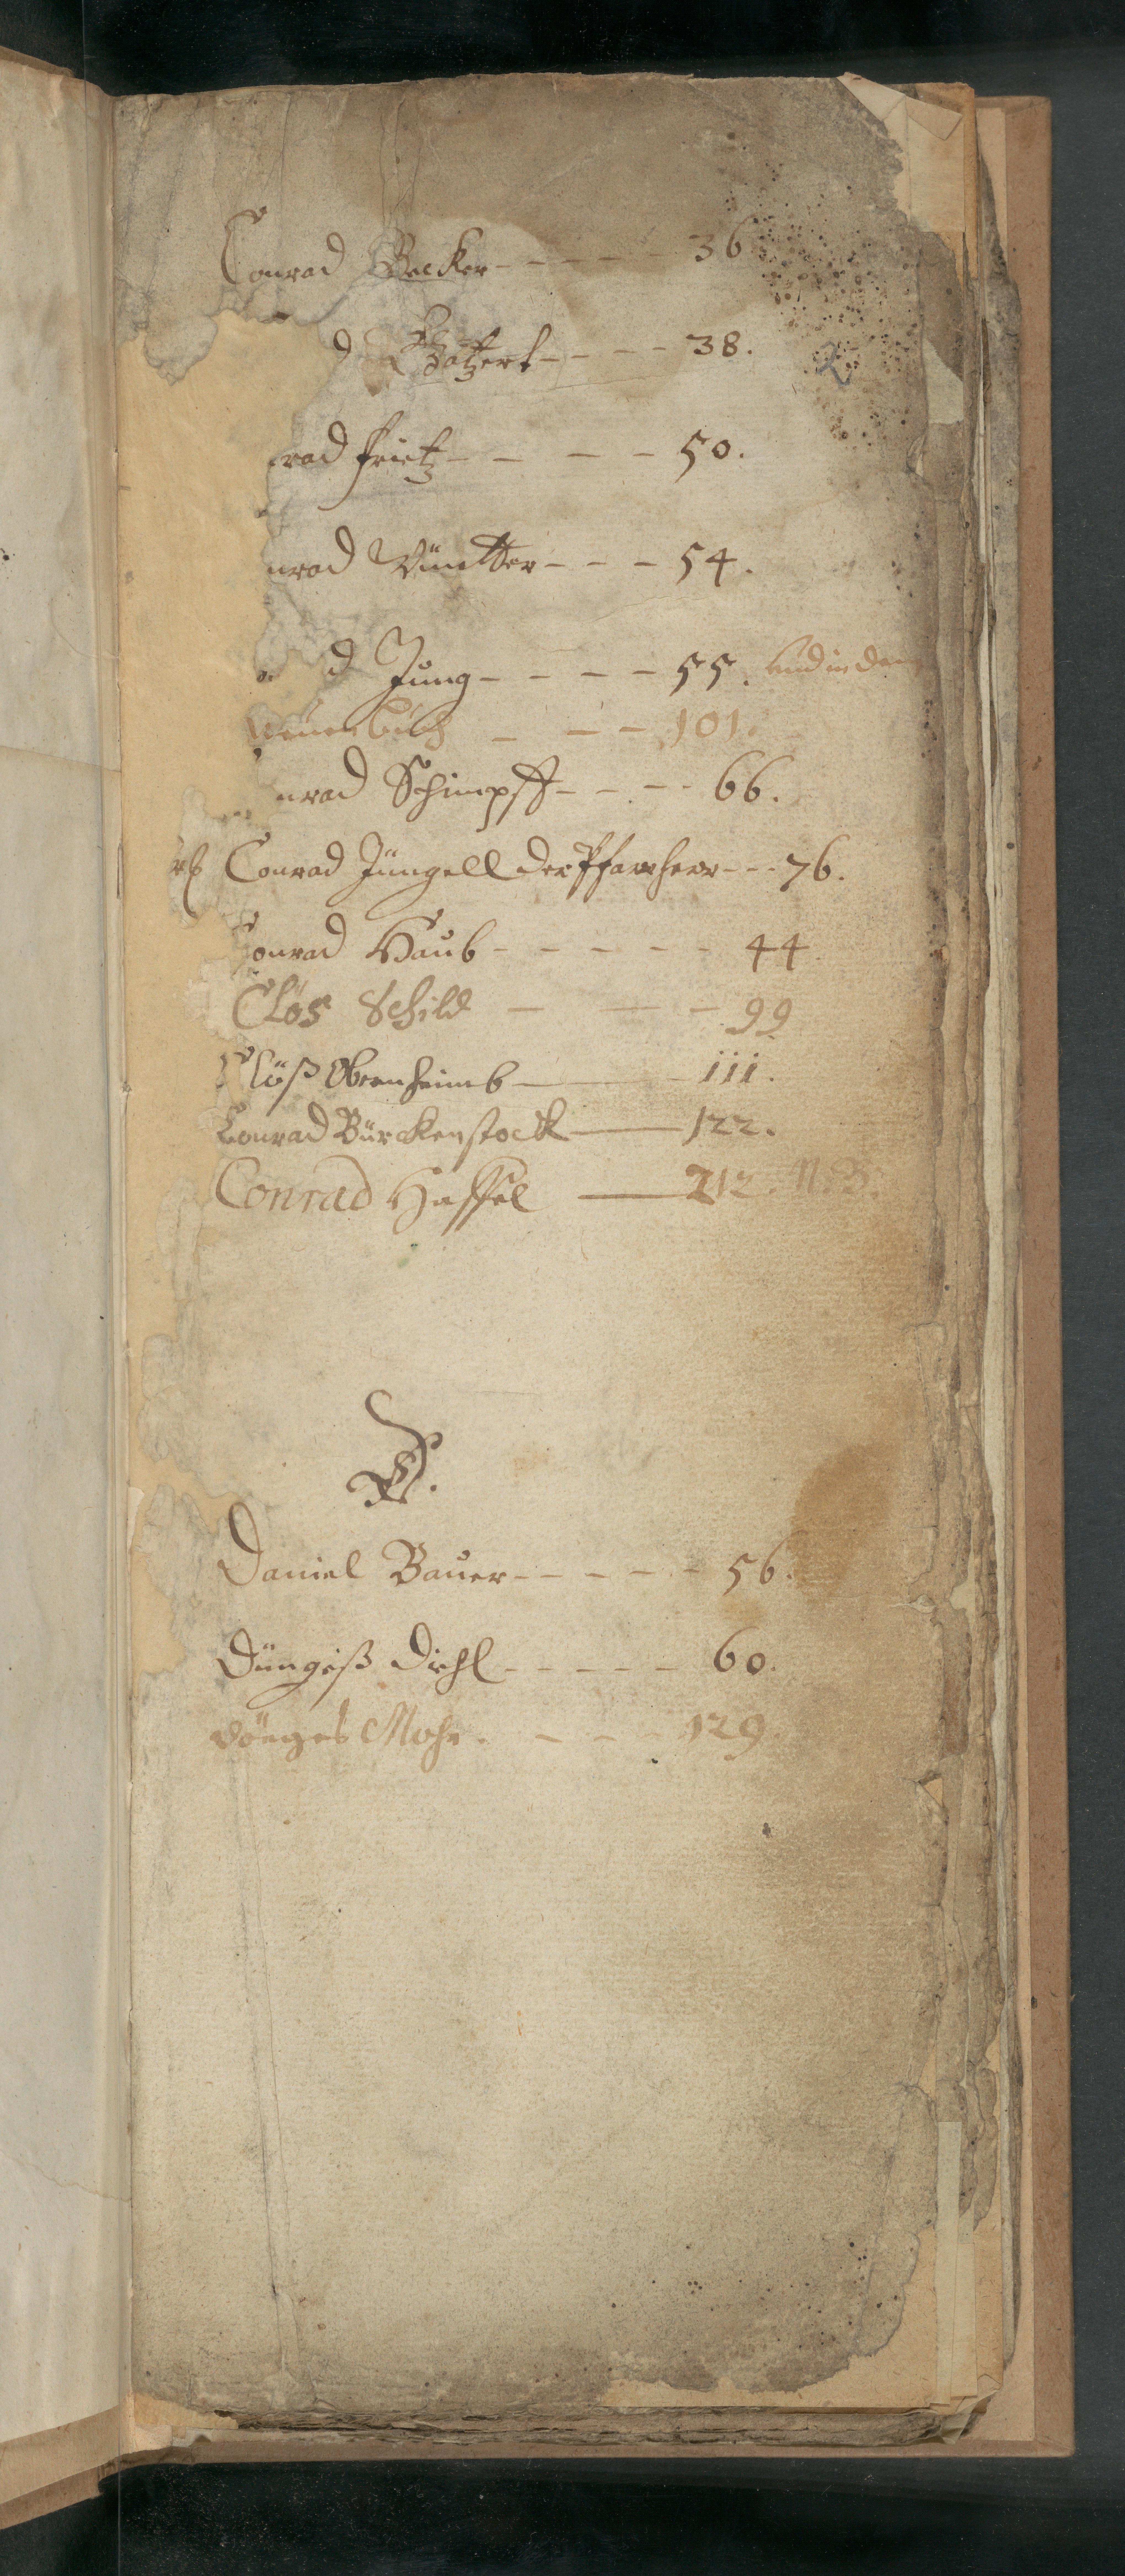 Conrad Becker - - - - - 36
d Batzert - - - - 38.
2
rad Frietz - - - - 50.
nrad - - - 54.
d Jung - - - - 55. und in dem
neuen buch - - - 101.
nrad Schimpff - - - - 66.
Conrad Jüngell der Pfarrherr - - - 76.
Conrad Haub - - - - - - 44
Clos Schild - - - 99
Clöß Obenheimb — 111.
Conrad Bürckenstock — 122.
Conrad Hassel — 212. N. B.
D.
Daniel Bauer - - - - - 56.
Düngeß Diehl - - - - - 60.
Dönges Mohr. - - - 129.